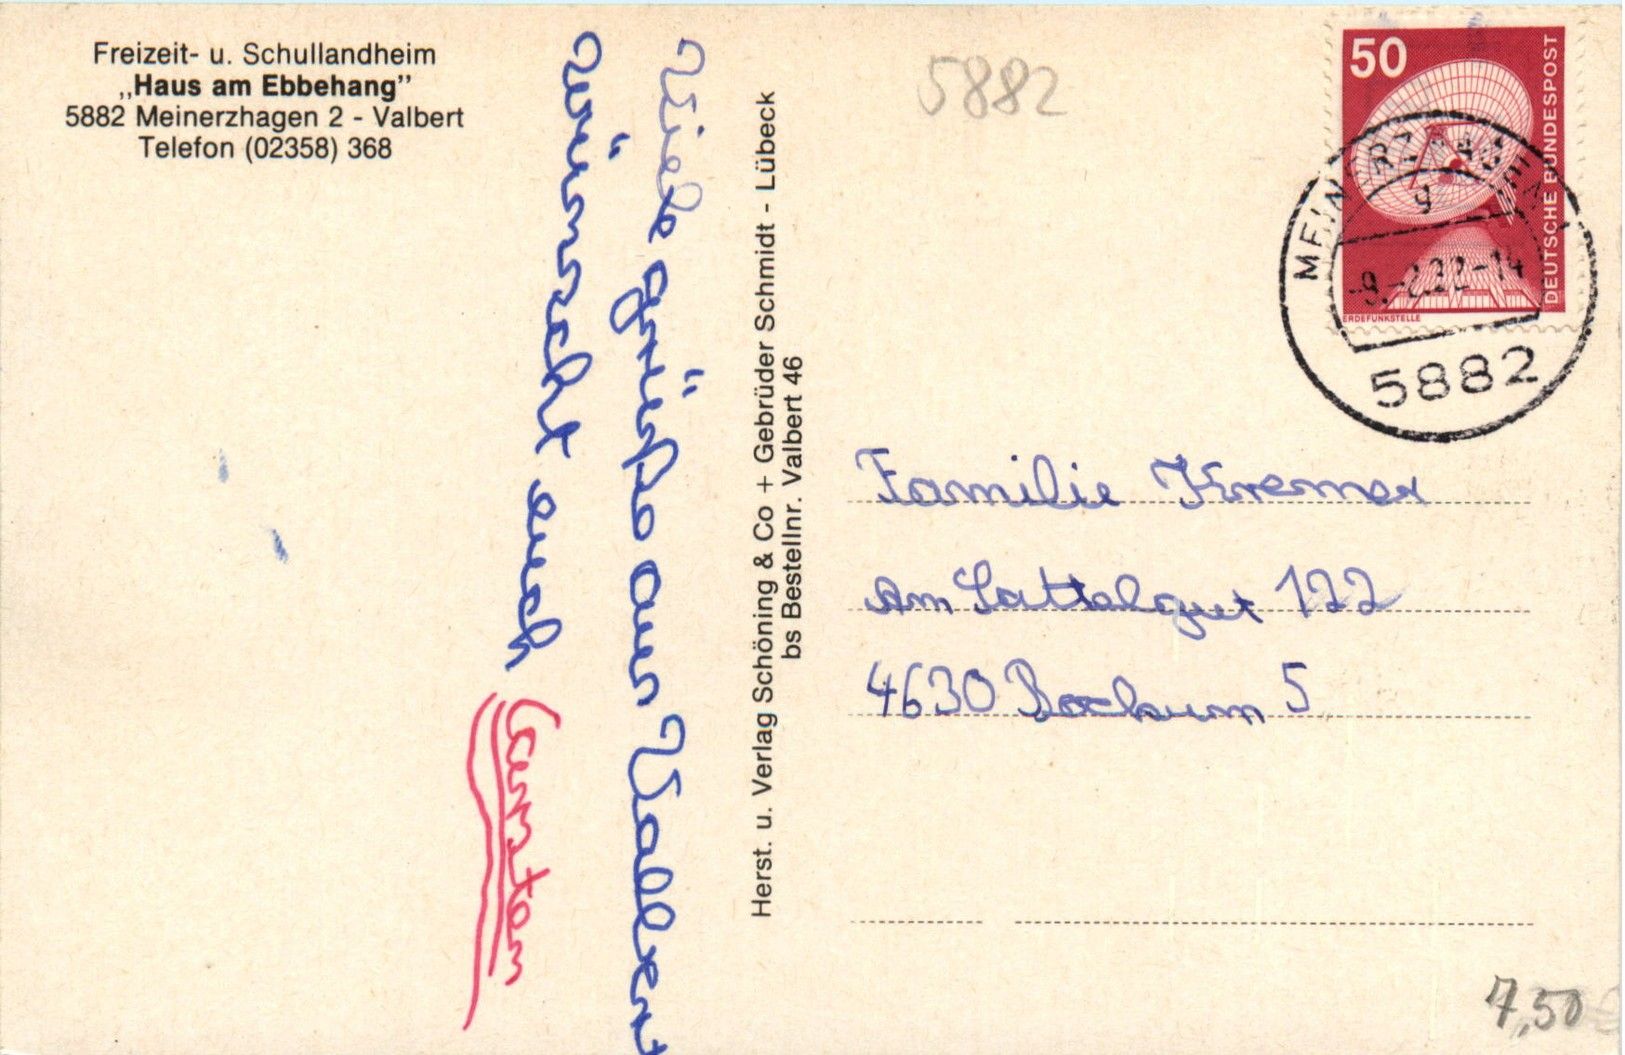 Freizeit- u. Schullandheim
„Haus am Ebbehang”
5882 Meinerzhagen 2 - Valbert
Telefon (02358) 368
Viele grüße aus Valbert
wünscht euch
Carsten
Herst. u. Verlag Schöning & Co + Gebrüder Schmidt - Lübeck
bs Bestellnr. Valbert 46
5882
50
DEUTSCHE BUNDESPOST
ERDEFUNKSTELLE
MEINERZHAGEN
g
-9.-2.82-14
5882
Familie Kremer
Am Sattelgut 122
4630 Bochum 5
7,50